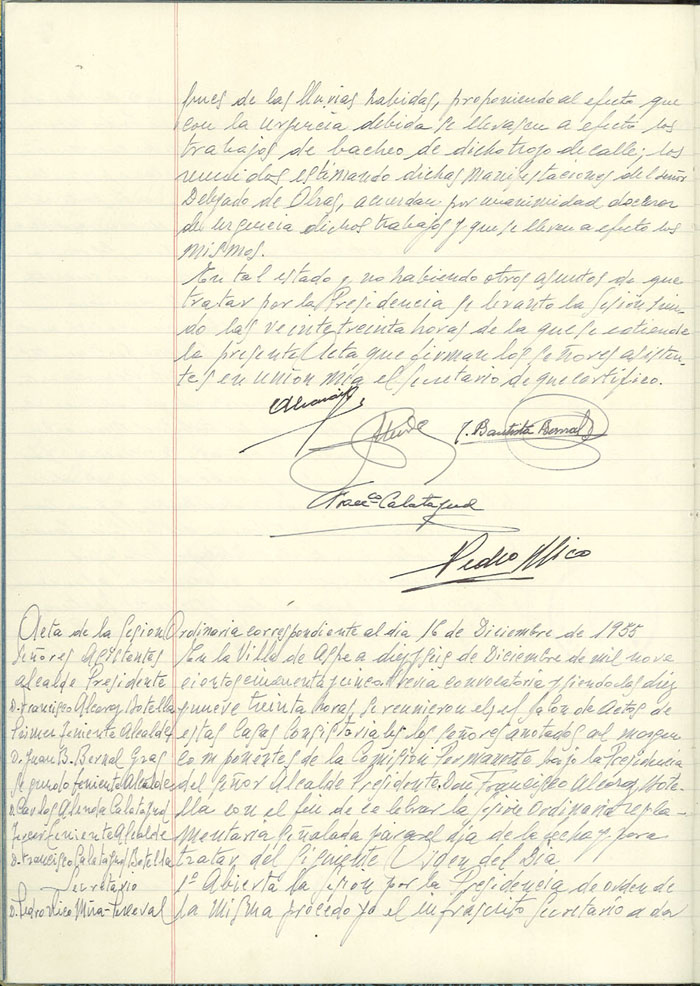 de las lluvias habidas, proponiendo al efecto que
con la urgencia debida se llevasen a efecto los
trabajos de bacheo de dicho trozo de calle; los
reunidos estimando dichas manifestaciones del Señor
Delegado de Obras, acuerdan por unanimidad
de urgencia dichos trabajos y que se lleven a efecto los
mismos.
En tal estado y no habiendo otros asuntos de que
tratar por la Presidencia se levanto la sesión sien-
do las veinte treinta horas de la que se extiende
la presente Acta que firman los Señores asisten-
tes en unión mia el Secretario de que certifico.
J. Bautista Bernal
Franco Calatayud
Pedro Mico
Acta de la Sesion Ordinaria correspondiente al dia 16 de Diciembre de 1955
Señores Asistentes
Alcalde Presidente
D. Francisco Alcaraz Botella
Primer Teniente Alcalde
D. Juan B. Bernal Gras
Segundo Teniente Alcalde
D. Carlos Almodia Calatayud
Tercer Teniente Alcalde
D. Francisco Calatayud Botella
Secretario
D. Pedro Mico Mira-Perceval
En la Villa de Aspe a diez y seis de Diciembre de mil nove
cientos cincuenta y cinco previa convocatoria y siendo las diez
y nueve treinta horas, se reunieron en el Salon de Actos de
estas Casas Consistoriales los señores anotados al margen
componentes de la Comisión Permanente bajo la Presidencia
del Señor Alcalde Presidente, Don Francisco Alcaraz Bote-
lla con el fin de celebrar la sesión Ordinaria regla-
mentaria señalada para el dia de la fecha y para
tratar del siguiente Orden del Dia
1º Abierta la Sesion por la Presidencia de orden de
la misma procedo yo el infrascrito Secretario a da